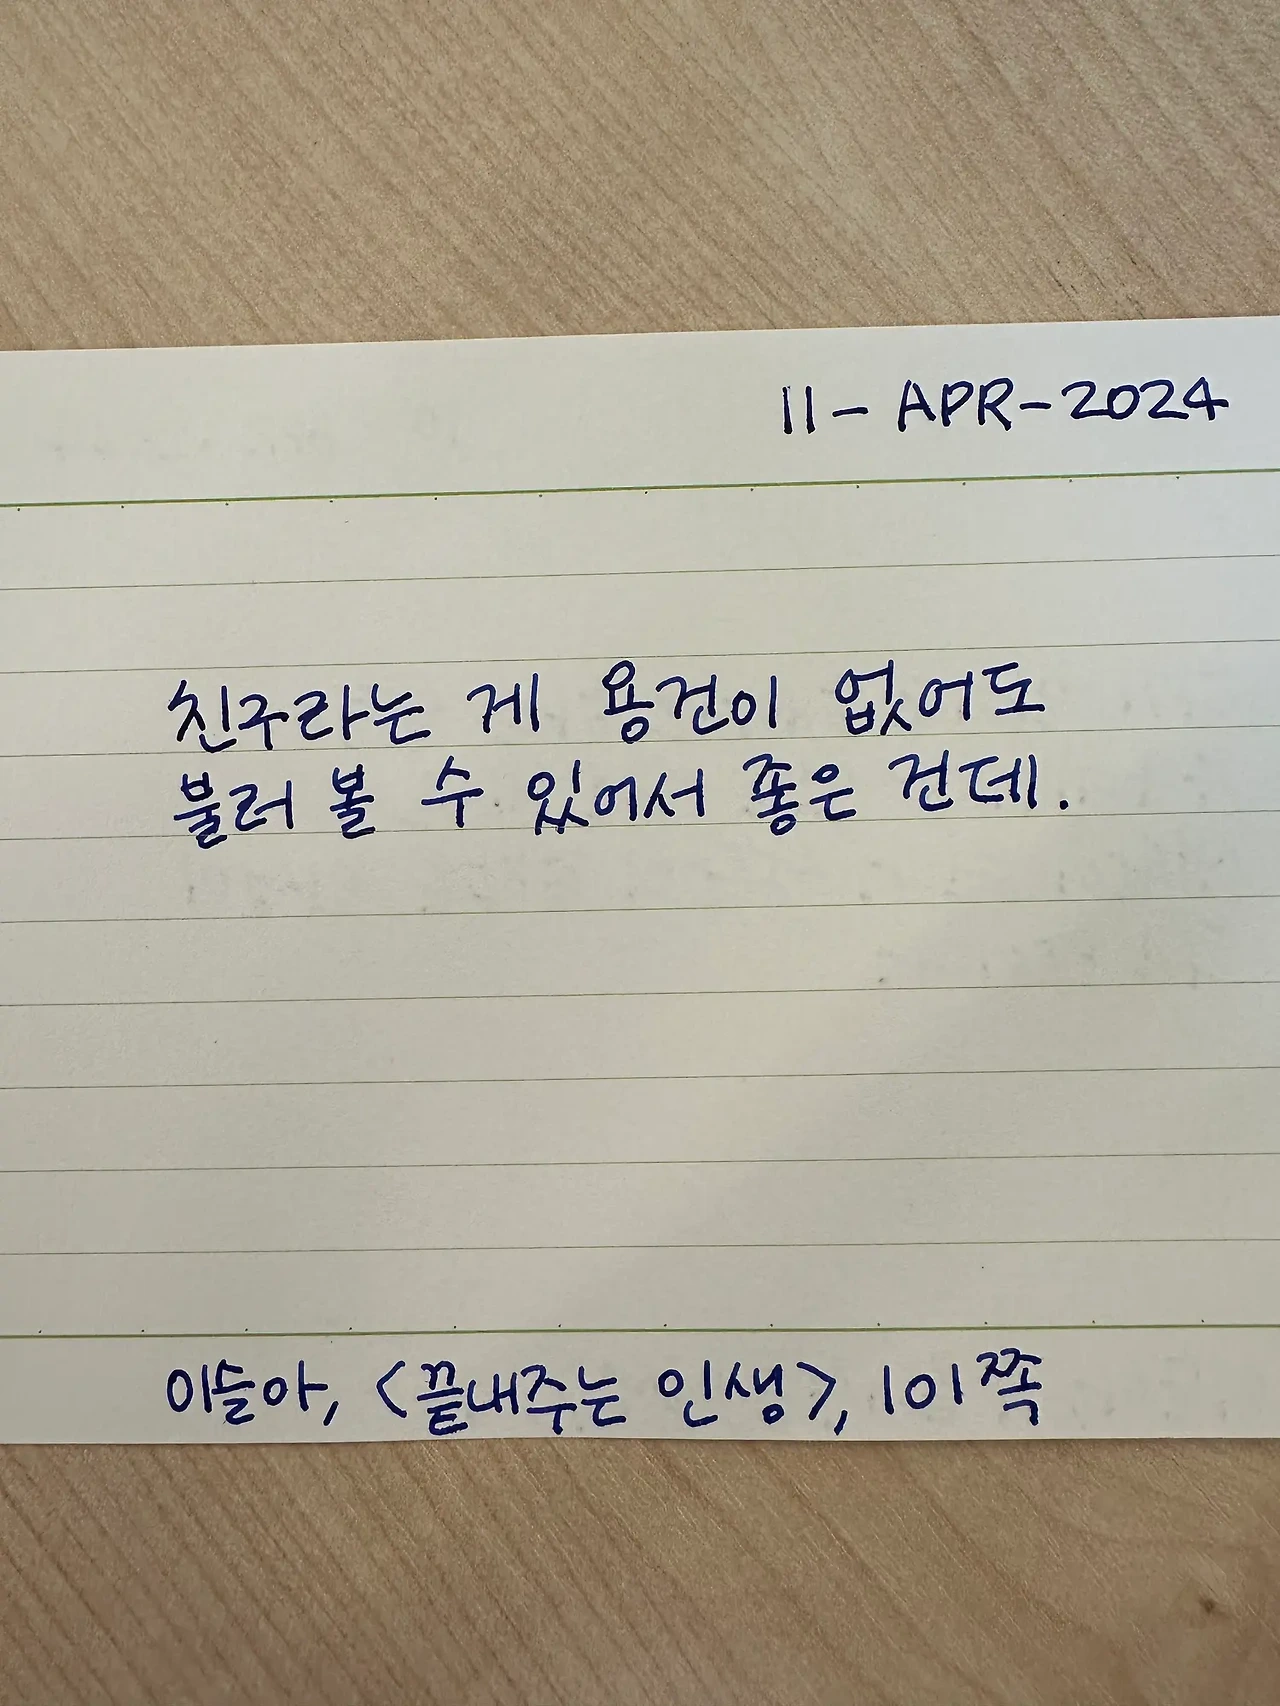 11-APR-2024
친구라는 게 용건이 없어도
불러 볼 수 있어서 좋은 건데.
이슬아, <끝내주는 인생>, 101쪽